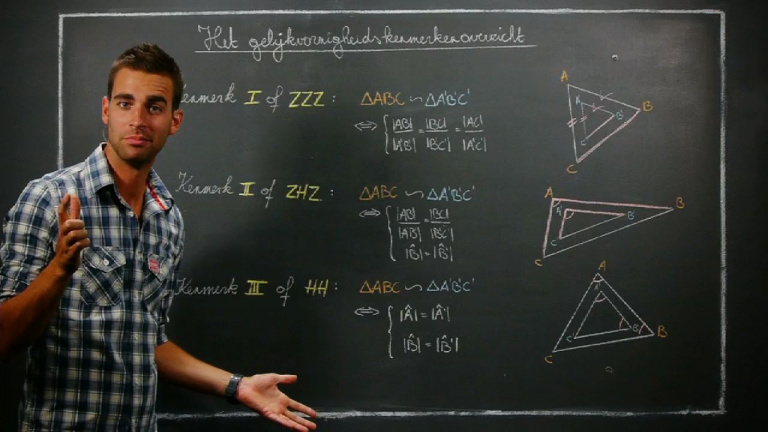 Het gelijkvormigheidskenmerkenoverzicht
Kenmerk I of ZZZ: ΔABC ∽ ΔA'B'C'
⇔ { |AB|/|A'B'| = |BC|/|B'C'| = |AC|/|A'C'|
A
B
C
A'
B'
C'
Kenmerk II of ZHZ: ΔABC ∽ ΔA'B'C'
⇔ { |AB|/|A'B'| = |BC|/|B'C'|
|B̂| = |B̂'|
A
B
C
A'
B'
C'
Kenmerk III of HH: ΔABC ∽ ΔA'B'C'
⇔ { |Â| = |Â'|
|B̂| = |B̂'|
A
B
C
A'
B'
C'